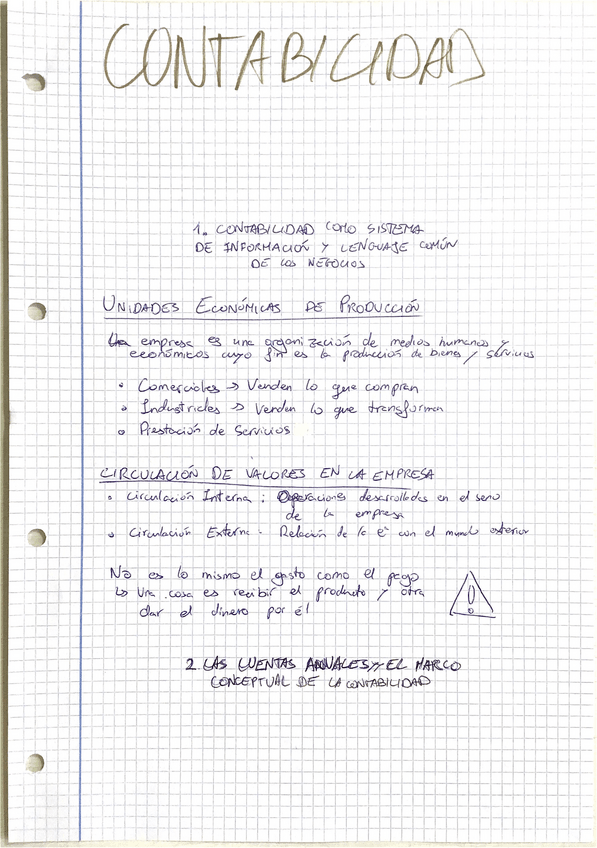 CONTABILIDAD
1. CONTABILIDAD COMO SISTEMA
DE INFORMACIÓN Y LENGUAJE COMÚN
DE LOS NEGOCIOS
UNIDADES ECONÓMICAS DE PRODUCCIÓN
Una empresa es una organización de medios humanos y
económicos cuyo fin es la producción de bienes / servicios
• Comerciales → Venden lo que compran
• Industriales → Venden lo que transforman
• Prestación de Servicios
CIRCULACIÓN DE VALORES EN LA EMPRESA
• Circulación Interna: Operaciones desarrolladas en el seno
de la empresa
• Circulación Externa. Relación de la eª con el mundo exterior
No es lo mismo el gasto como el pago
↳ Una cosa es recibir el producto y otra
dar el dinero por él
!
2. LAS CUENTAS ANUALES Y EL MARCO
CONCEPTUAL DE LA CONTABILIDAD